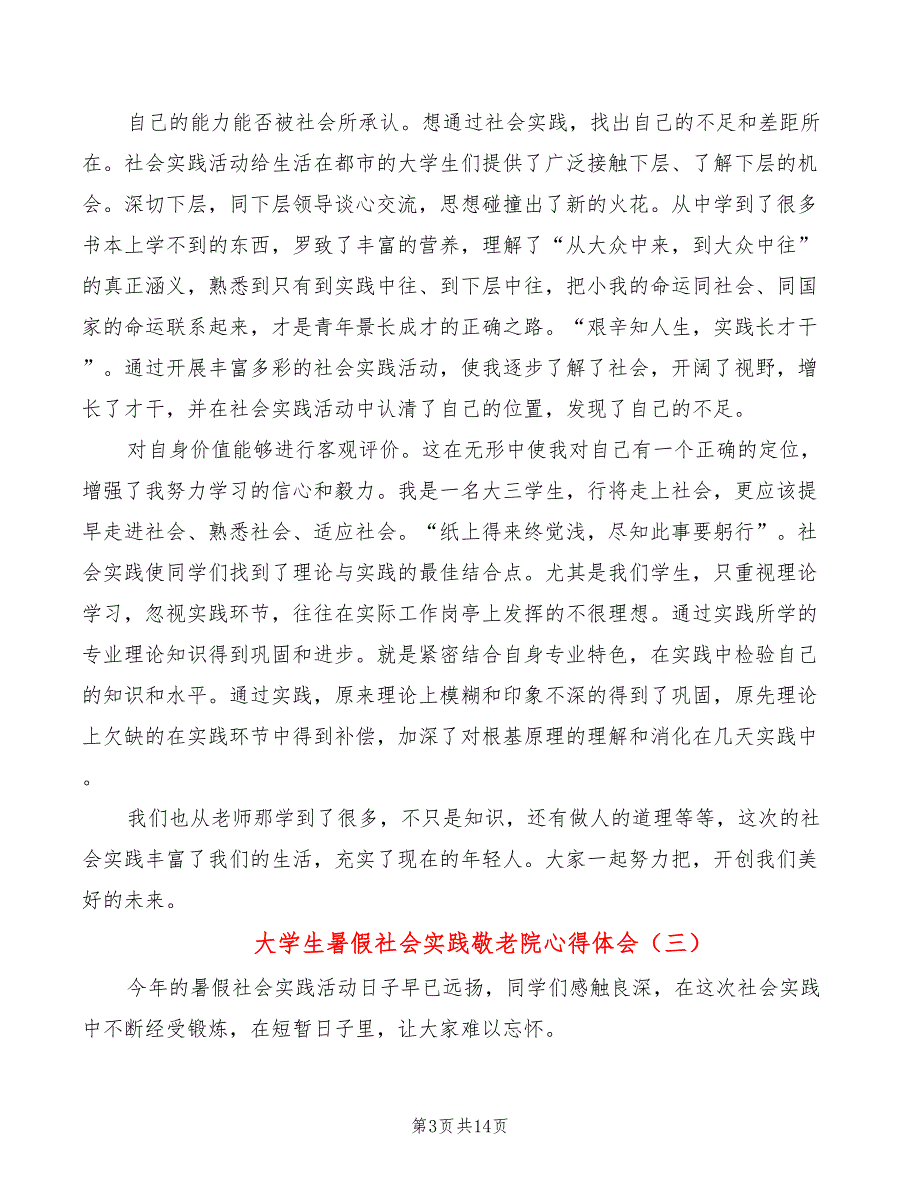 自己的能力能否被社会所承认。想通过社会实践，找出自己的不足和差距所
在。社会实践活动给生活在都市的大学生们提供了广泛接触下层、了解下层的机
会。深切下层，同下层领导谈心交流，思想碰撞出了新的火花。从中学到了很多
书本上学不到的东西，罗致了丰富的营养，理解了“从大众中来，到大众中往”
的真正涵义，熟悉到只有到实践中往、到下层中往，把小我的命运同社会、同国
家的命运联系起来，才是青年景长成才的正确之路。“艰辛知人生，实践长才干
”。通过开展丰富多彩的社会实践活动，使我逐步了解了社会，开阔了视野，增
长了才干，并在社会实践活动中认清了自己的位置，发现了自己的不足。
对自身价值能够进行客观评价。这在无形中使我对自己有一个正确的定位，
增强了我努力学习的信心和毅力。我是一名大三学生，行将走上社会，更应该提
早走进社会、熟悉社会、适应社会。“纸上得来终觉浅，尽知此事要躬行”。社
会实践使同学们找到了理论与实践的最佳结合点。尤其是我们学生，只重视理论
学习，忽视实践环节，往往在实际工作岗亭上发挥的不很理想。通过实践所学的
专业理论知识得到巩固和进步。就是紧密结合自身专业特色，在实践中检验自己
的知识和水平。通过实践，原来理论上模糊和印象不深的得到了巩固，原先理论
上欠缺的在实践环节中得到补偿，加深了对根基原理的理解和消化在几天实践中
。
我们也从老师那学到了很多，不只是知识，还有做人的道理等等，这次的社
会实践丰富了我们的生活，充实了现在的年轻人。大家一起努力把，开创我们美
好的未来。
大学生暑假社会实践敬老院心得体会（三）
今年的暑假社会实践活动日子早已远扬，同学们感触良深，在这次社会实践
中不断经受锻炼，在短暂日子里，让大家难以忘怀。
第3页共14页